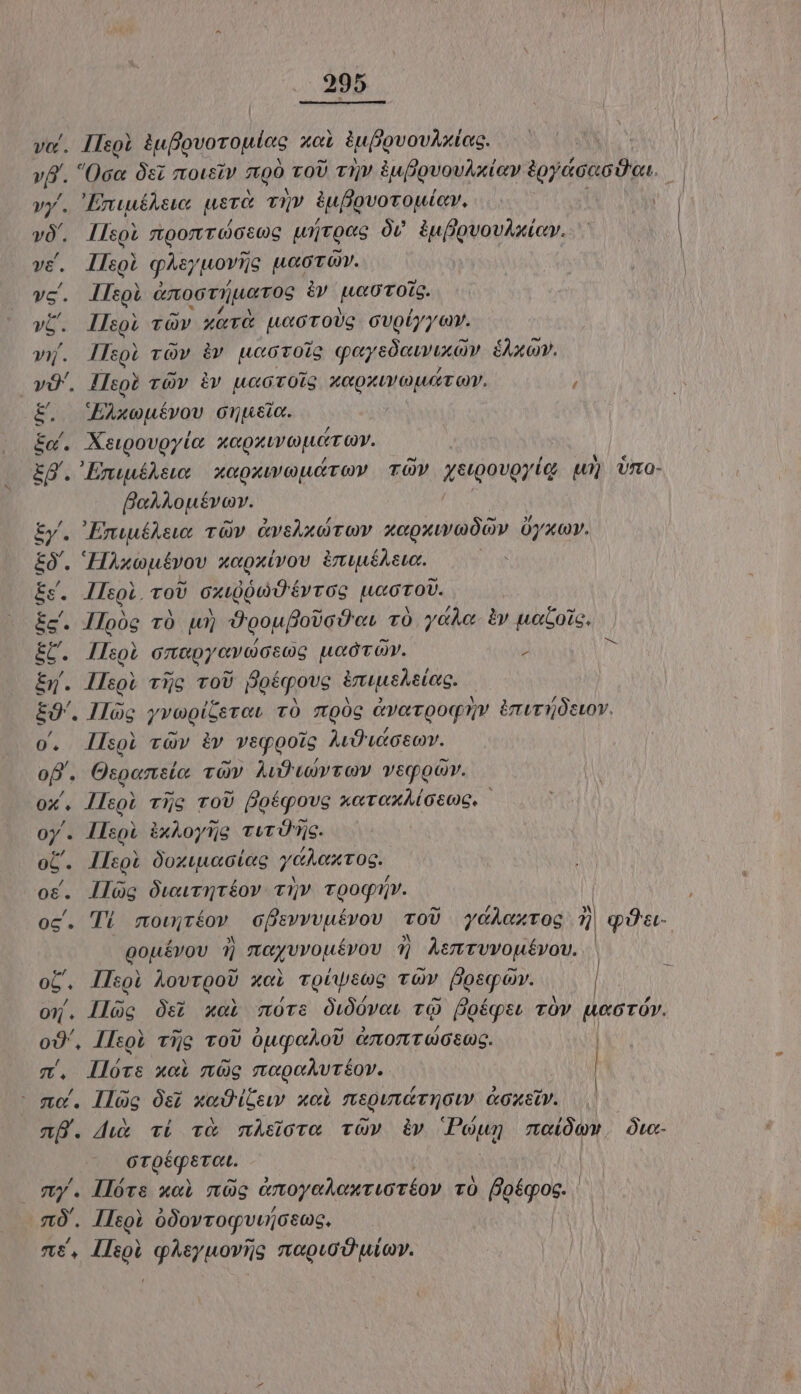 295
να΄. Περὶ ἐμβρυοτομίας καὶ ἐμβρυουλκίας.
νβ΄. Ὅσα δεῖ ποιεῖν πρὸ τοῦ τὴν ἐμβρυουλκίαν ἐργάσασθαι.
νγ΄. Ἐπιμέλεια μετὰ τὴν ἐμβρυοτομίαν.
νδ΄. Περὶ προπτώσεως μήτρας δι' ἐμβρυουλκίαν.
νε΄. Περὶ φλεγμονῆς μαστῶν.
νς΄. Περὶ ἀποστήματος ἐν μαστοῖς.
νζ΄. Περὶ τῶν κατὰ μαστοὺς συρίγγων.
νη΄. Περὶ τῶν ἐν μαστοῖς φαγεδαινικῶν ἑλκῶν.
νθ΄. Περὶ τῶν ἐν μαστοῖς καρκινωμάτων.
ξ΄. Ἑλκωμένου σημεῖα.
ξα΄. Χειρουργία καρκινωμάτων.
ξβ΄. Ἐπιμέλεια καρκινωμάτων τῶν χειρουργίᾳ μὴ ὑπο-
βαλλομένων.
ξγ΄. Ἐπιμέλεια τῶν ἀνελκώτων καρκινωδῶν ὄγκων.
ξδ΄. Ἡλκωμένου καρκίνου ἐπιμέλεια.
ξε΄. Περὶ τοῦ σκιῤῥωθέντος μαστοῦ.
ξς΄. Πρὸς τὸ μὴ θρομβοῦσθαι τὸ γάλα ἐν μαζοῖς.
ξζ΄. Περὶ σπαργανώσεως μαστῶν.
ξη΄. Περὶ τῆς τοῦ βρέφους ἐπιμελείας.
ξθ΄. Πῶς γνωρίζεται τὸ πρὸς ἀνατροφὴν ἐπιτήδειον.
ο΄. Περὶ τῶν ἐν νεφροῖς λιθιάσεων.
οβ΄. Θεραπεία τῶν λιθιώντων νεφρῶν.
οκ΄. Περὶ τῆς τοῦ βρέφους κατακλίσεως.
ογ΄. Περὶ ἐκλογῆς τιτθῆς.
οζ΄. Περὶ δοκιμασίας γάλακτος.
οε΄. Πῶς διαιτητέον τὴν τροφήν.
ος΄. Τί ποιητέον σβεννυμένου τοῦ γάλακτος ἢ φθει-
ρομένου ἢ παχυνομένου ἢ λεπτυνομένου.
οζ΄. Περὶ λουτροῦ καὶ τρίψεως τῶν βρεφῶν.
οη΄. Πῶς δεῖ καὶ πότε διδόναι τῷ βρέφει τὸν μαστόν.
οθ΄. Περὶ τῆς τοῦ ὀμφαλοῦ ἀποπτώσεως.
π΄. Πότε καὶ πῶς παραλυτέον.
πα΄. Πῶς δεῖ καθίζειν καὶ περιπάτησιν ἀσκεῖν.
πβ΄. Διὰ τί τὰ πλεῖστα τῶν ἐν Ῥώμῃ παίδων δια-
στρέφεται.
πγ΄. Πότε καὶ πῶς ἀπογαλακτιστέον τὸ βρέφος.
πδ΄. Περὶ ὀδοντοφυιήσεως.
πε΄. Περὶ φλεγμονῆς παρισθμίων.